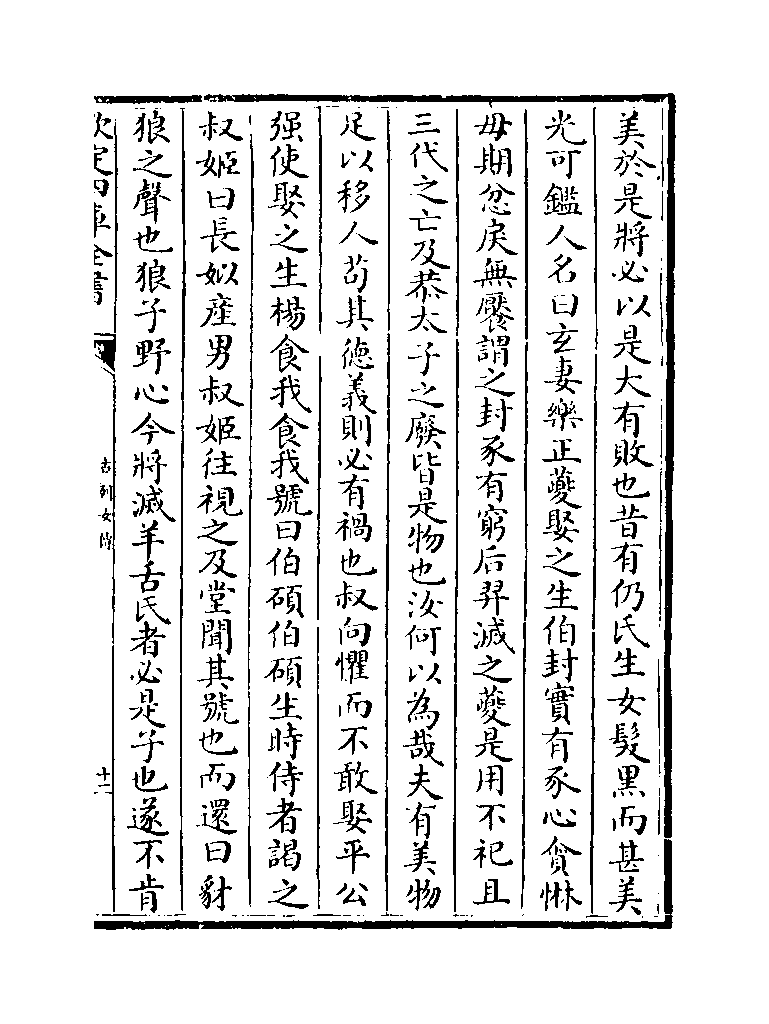 美於是將必以是大有敗也昔有仍氏生女髮黑而甚美
光可鑑人名曰玄妻樂正夔娶之生伯封實有豕心貪惏
毋期忿戾無饜謂之封豕有窮后羿滅之夔是用不祀且
三代之亡及恭太子之廢皆是物也汝何以為哉夫有美物
足以移人苟其德義則必有禍也叔向懼而不敢娶平公
强使娶之生楊食我食我號曰伯碩伯碩生時侍者謁之
叔姬曰長姒産男叔姬往視之及堂聞其號也而還曰豺
狼之聲也狼子野心今將滅羊舌氏者必是子也遂不肯
欽定四庫全書
古列女傳
十二